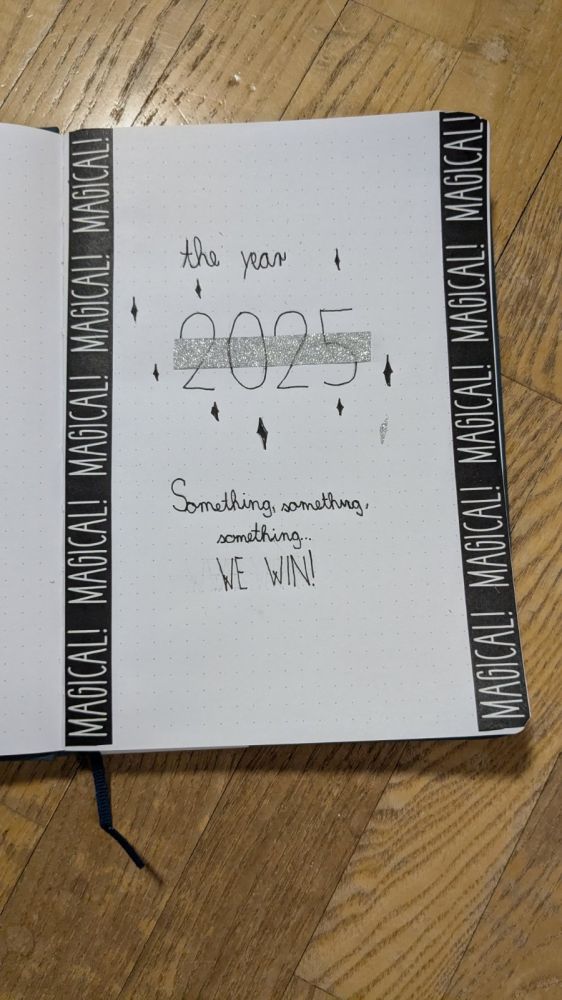 MAGICAL! MAGICAL! MAGICAL! MAGICAL! MAGICAL!
the year
2025
Something, something,
something...
WE WIN!
MAGICAL! MAGICAL! MAGICAL! MAGICAL! MAGICAL!